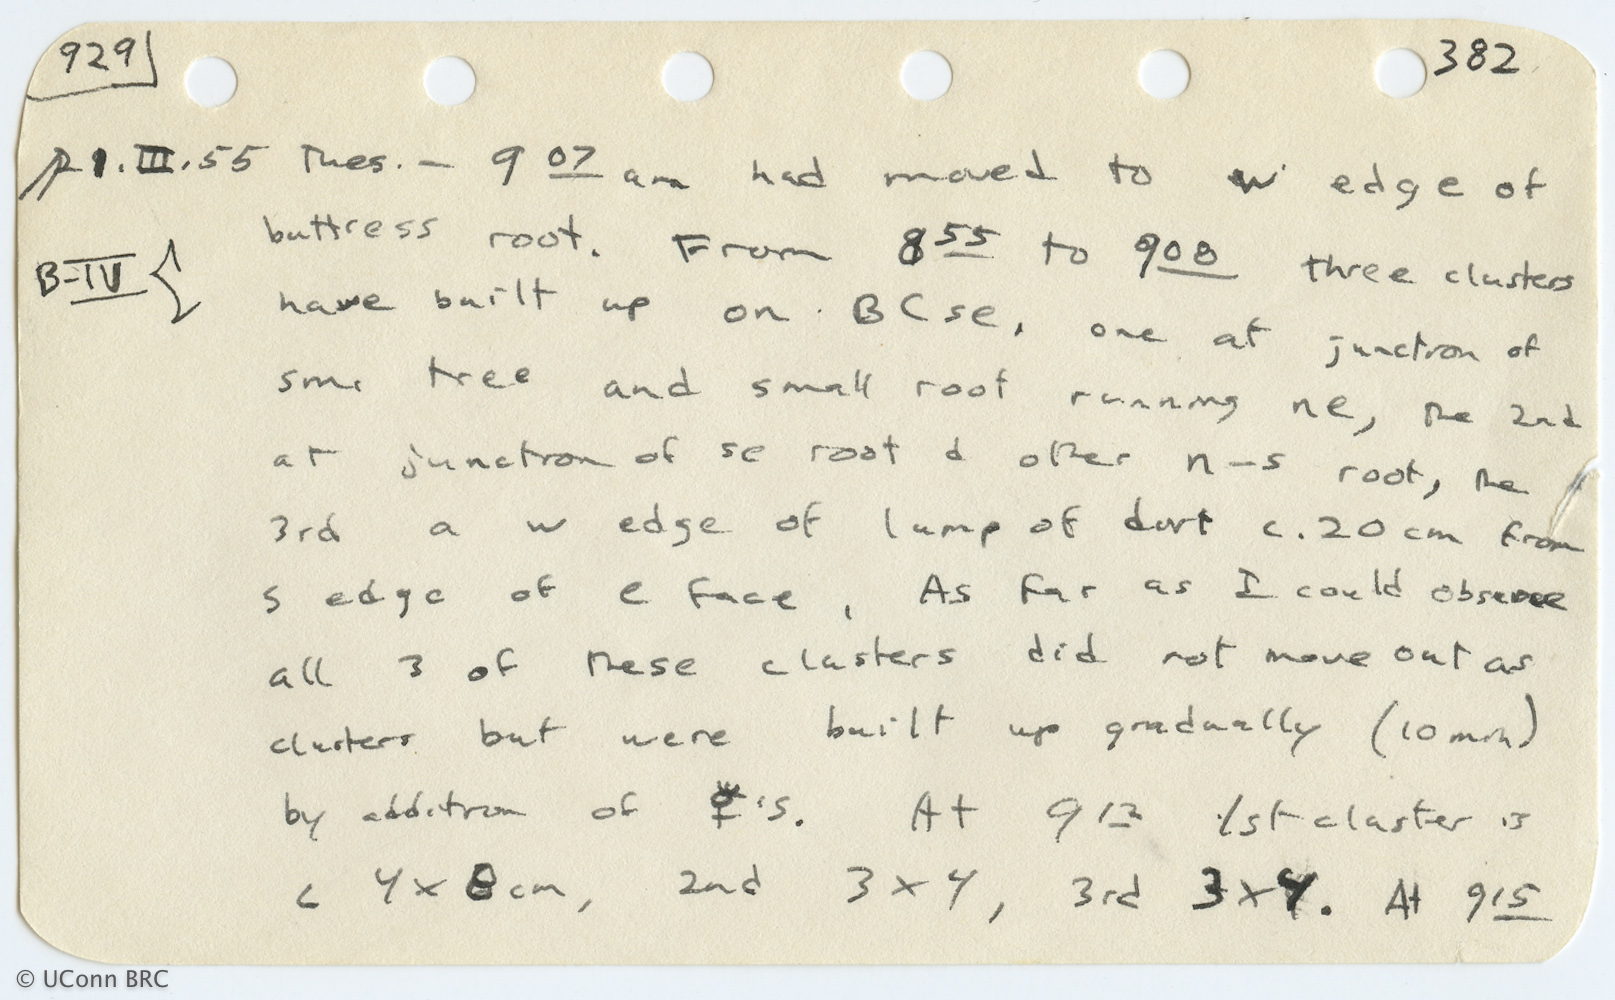 929 382
1.III.55 Tues. - 9 07 am had moved to w edge of
buttress root. From 8 55 to 9 08 three clusters
B-IV { have built up on BCse, one at junction of
sml tree and small root running ne, the 2nd
at junction of se root & other n-s root, the
3rd a w edge of lump of dirt c. 20 cm from
s edge of e face. As far as I could observe
all 3 of these clusters did not move out as
clusters but were built up gradually (10 min)
by addition of ☿'s. At 9 12 1st cluster is
c 4 x 8 cm, 2nd 3 x 4, 3rd 3 x 4. At 9 15
© UConn BRC